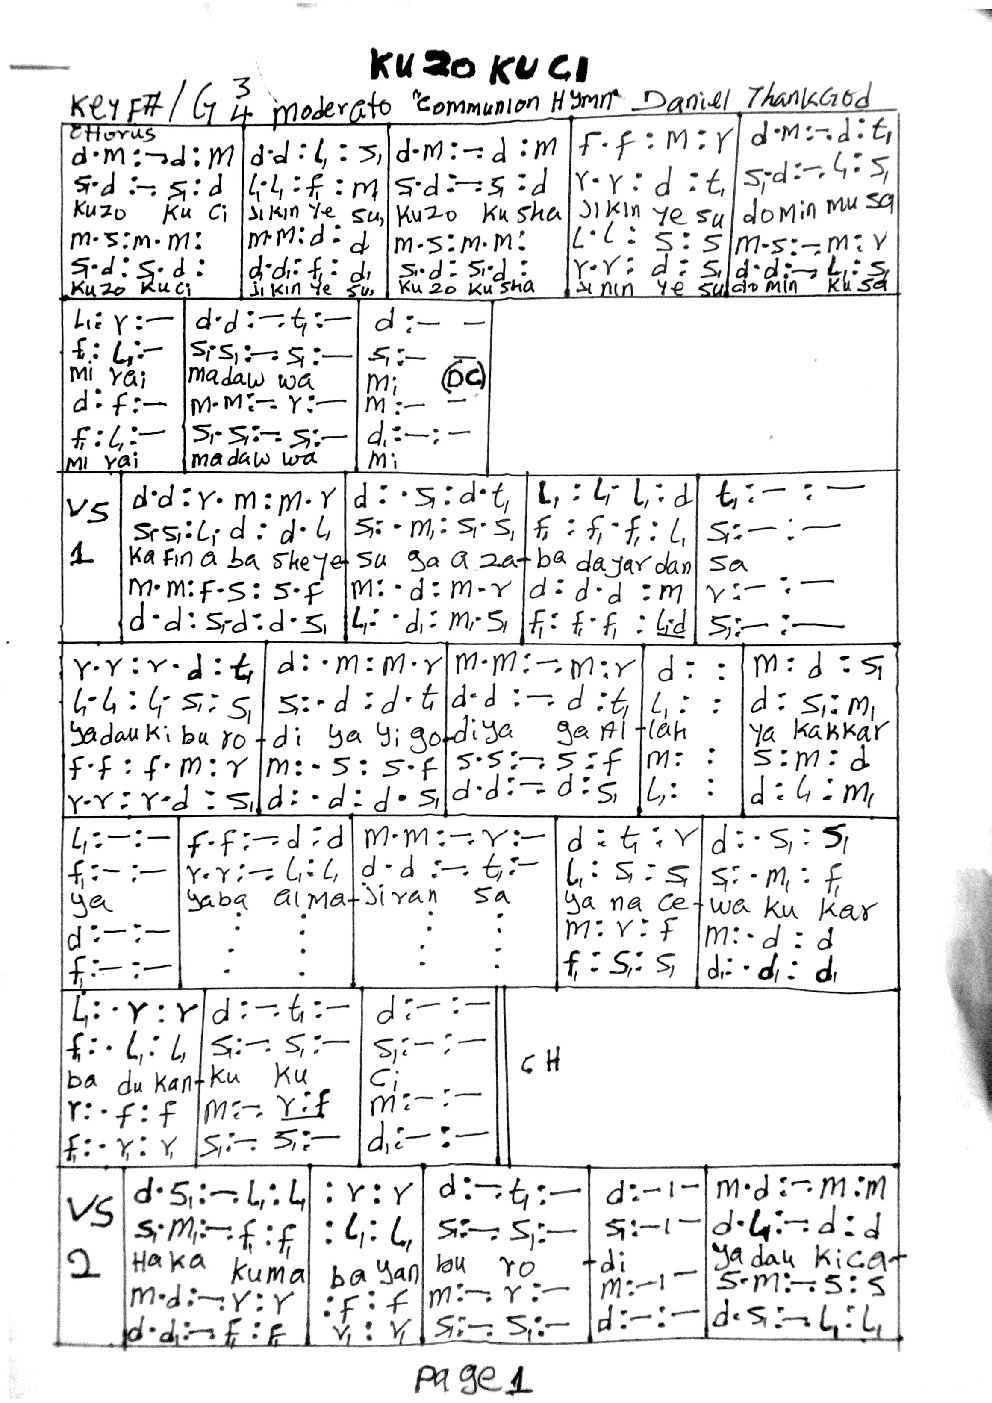 KUZO KU CI
Key F#/G 3/4 moderato "Communion Hymn" Daniel ThankGod
CHorus
d·m:-·d:m | d·d:l₁:s₁ | d·m:-·d:m | f·f:m:r | d·m:-·d:t₁
s₁·d:-·s₁:d | l₁·l₁:f₁:m₁ | s₁·d:-·s₁:d | r·r:d:t₁ | s₁·d:-·l₁:s₁
Kuzo Ku Ci | Jikin Ye su, | Kuzo Ku sha | Jikin Ye su | domin mu sa
m·s:m·m: | m·m:d:d | m·s:m·m: | l·l:s:s | m·s:-·m:r
s₁·d:s₁·d: | d·d₁:f₁:d₁ | s₁·d:s₁·d: | r·r:d:s₁ | d·d:-·l₁:s₁
Kuzo Kuci | Jikin Ye su, | Kuzo Kusha | Jinin Ye su | domin Ku sa
l₁:r:— | d·d:-·t₁:— | d:— —
f₁:l₁:— | s₁·s₁:-·s₁:— | s₁:— —
mi rai | madaw wa | mi DC
d:f:— | m·m:-·r:— | m:— —
f₁:l₁:— | s₁·s₁:-·s₁:— | d₁:—:—
mi rai | madaw wa | mi
VS 1
d·d:r·m:m·r | d:·s₁:d·t₁ | l₁:l₁·l₁:d | t₁:—:—
s₁·s₁:l₁·d:d·l₁ | s₁:·m₁:s₁·s₁ | f₁:f₁·f₁:l₁ | s₁:—:—
Kafin a ba sheye- | su ga a za- | ba dayardan | sa
m·m:f·s:s·f | m:·d:m·r | d:d·d:m | r:—:—
d·d:s₁·d:d·s₁ | l₁:·d₁:m₁·s₁ | f₁:f₁·f₁:l₁d | s₁:—:—
r·r:r·d:t₁ | d:·m:m·r | m·m:-·m:r | d: : | m:d:s₁
l₁·l₁:l₁·s₁:s₁ | s₁:·d:d·t₁ | d·d:-·d:t₁ | l₁: : | d:s₁:m₁
yadau ki bu ro- | di ya yi go- | diya ga Al- | lah | ya kakkar
f·f:f·m:r | m:·s:s·f | s·s:-·s:f | m: : | s:m:d
r·r:r·d:s₁ | d:·d:d·s₁ | d·d:-·d:s₁ | l₁: : | d:l₁:m₁
l₁:—:— | f·f:-·d:d | m·m:-·r:— | d:t₁:r | d:·s₁:s₁
f₁:—:— | r·r:-·l₁:l₁ | d·d:-·t₁:— | l₁:s₁:s₁ | s₁:·m₁:f₁
ya | yaba alma- | jiran sa | ya na ce- | wa ku kar
d:—:— | : : | : : | m:r:f | m:·d:d
f₁:—:— | : : | : : | f₁:s₁:s₁ | d₁:·d₁:d₁
l₁:·r:r | d:-·t₁:— | d:—:—
f₁:·l₁:l₁ | s₁:-·s₁:— | s₁:—:—
ba du kan- | ku ku | ci | CH
r:·f:f | m:-·r:f | m:—:—
f₁:·r₁:r₁ | s₁:-·s₁:— | d₁:—:—
VS 2
d·s₁:-·l₁:l₁ | :r:r | d:-·t₁:— | d:-1- | m·d:-·m:m
s₁·m₁:-·f₁:f₁ | :l₁:l₁ | s₁:-·s₁:— | s₁:-1- | d·l₁:-·d:d
Haka kuma | ba yan | bu ro | -di | ya dau kica-
m·d:-·r:r | :f:f | m:-·r:— | m:-1- | s·m:-·s:s
d·d₁:-·f₁:f₁ | r₁:r₁ | s₁:-·s₁:— | d:—:— | d·s₁:-·l₁:l₁
page 1